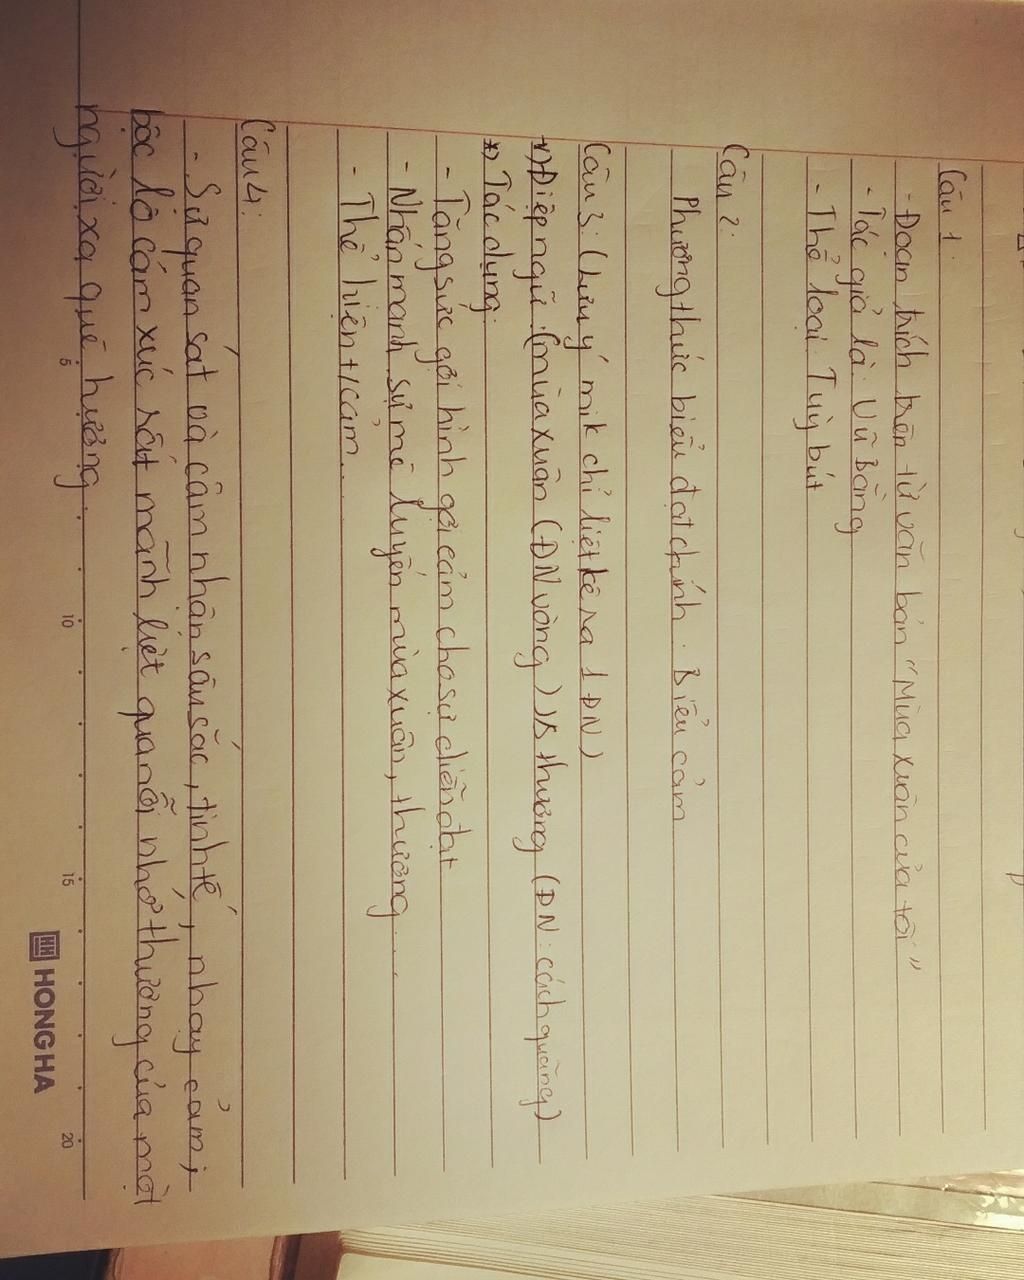 Câu 1:
- Đoạn trích trên từ văn bản "Mùa xuân của tôi"
- Tác giả là: Vũ Bằng
- Thể loại: Tuỳ bút
Câu 2:
Phương thức biểu đạt chính: Biểu cảm
Câu 3: (Lưu ý mik chỉ liệt kê ra 1 ĐN)
*) Điệp ngữ: (mùa xuân (ĐN vòng) thương (ĐN: cách quãng)
*) Tác dụng:
- Tăng sức gợi hình gợi cảm cho sự diễn đạt
- Nhấn mạnh sự mê luyến mùa xuân, thương....
- Thể hiện t/cảm...
Câu 4:
- Sự quan sát và cảm nhận sâu sắc, tinh tế, nhạy cảm;
bộc lộ cảm xúc rất mãnh liệt qua nỗi nhớ thương của một
người xa quê hương.
5 10 15 20
HH HONG HA